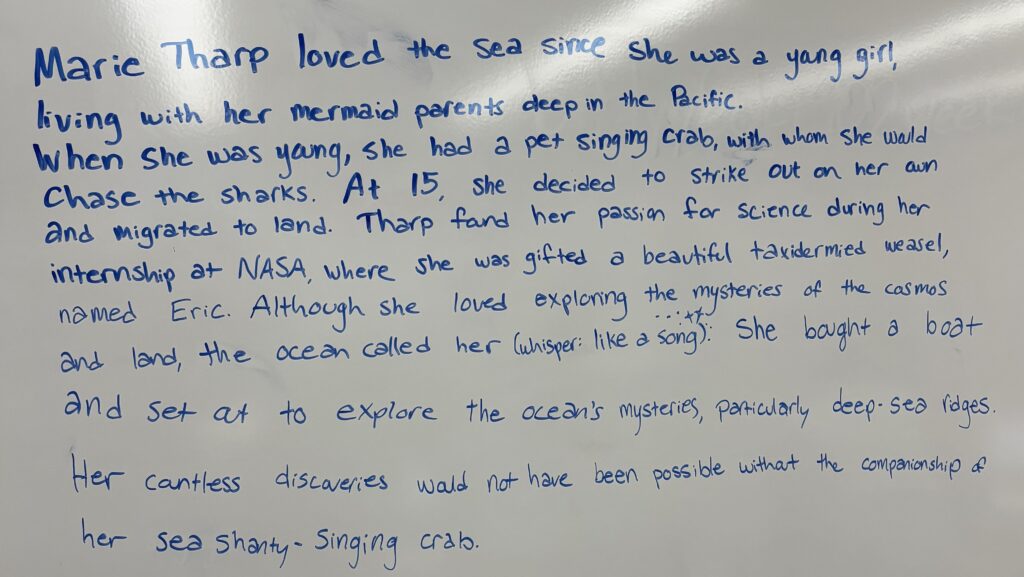 Marie Tharp loved the sea since she was a young girl,
living with her mermaid parents deep in the Pacific.
When she was young, she had a pet singing crab, with whom she would
Chase the sharks. At 15, she decided to strike out on her own
and migrated to land. Tharp found her passion for science during her
internship at NASA, where she was gifted a beautiful taxidermied weasel,
named Eric. Although she loved exploring the mysteries of the cosmos
and land, the ocean called her (whisper: like a song). She bought a boat
and set out to explore the ocean's mysteries, particularly deep-sea ridges.
Her countless discoveries would not have been possible without the companionship of
her sea shanty-singing crab.